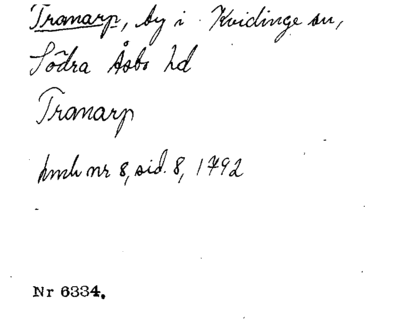 Tranarp, by i Kvidinge sn,
Södra Åsbo hd
Tranarp
hmh nr 8, sid. 8, 1792
Nr 6334.